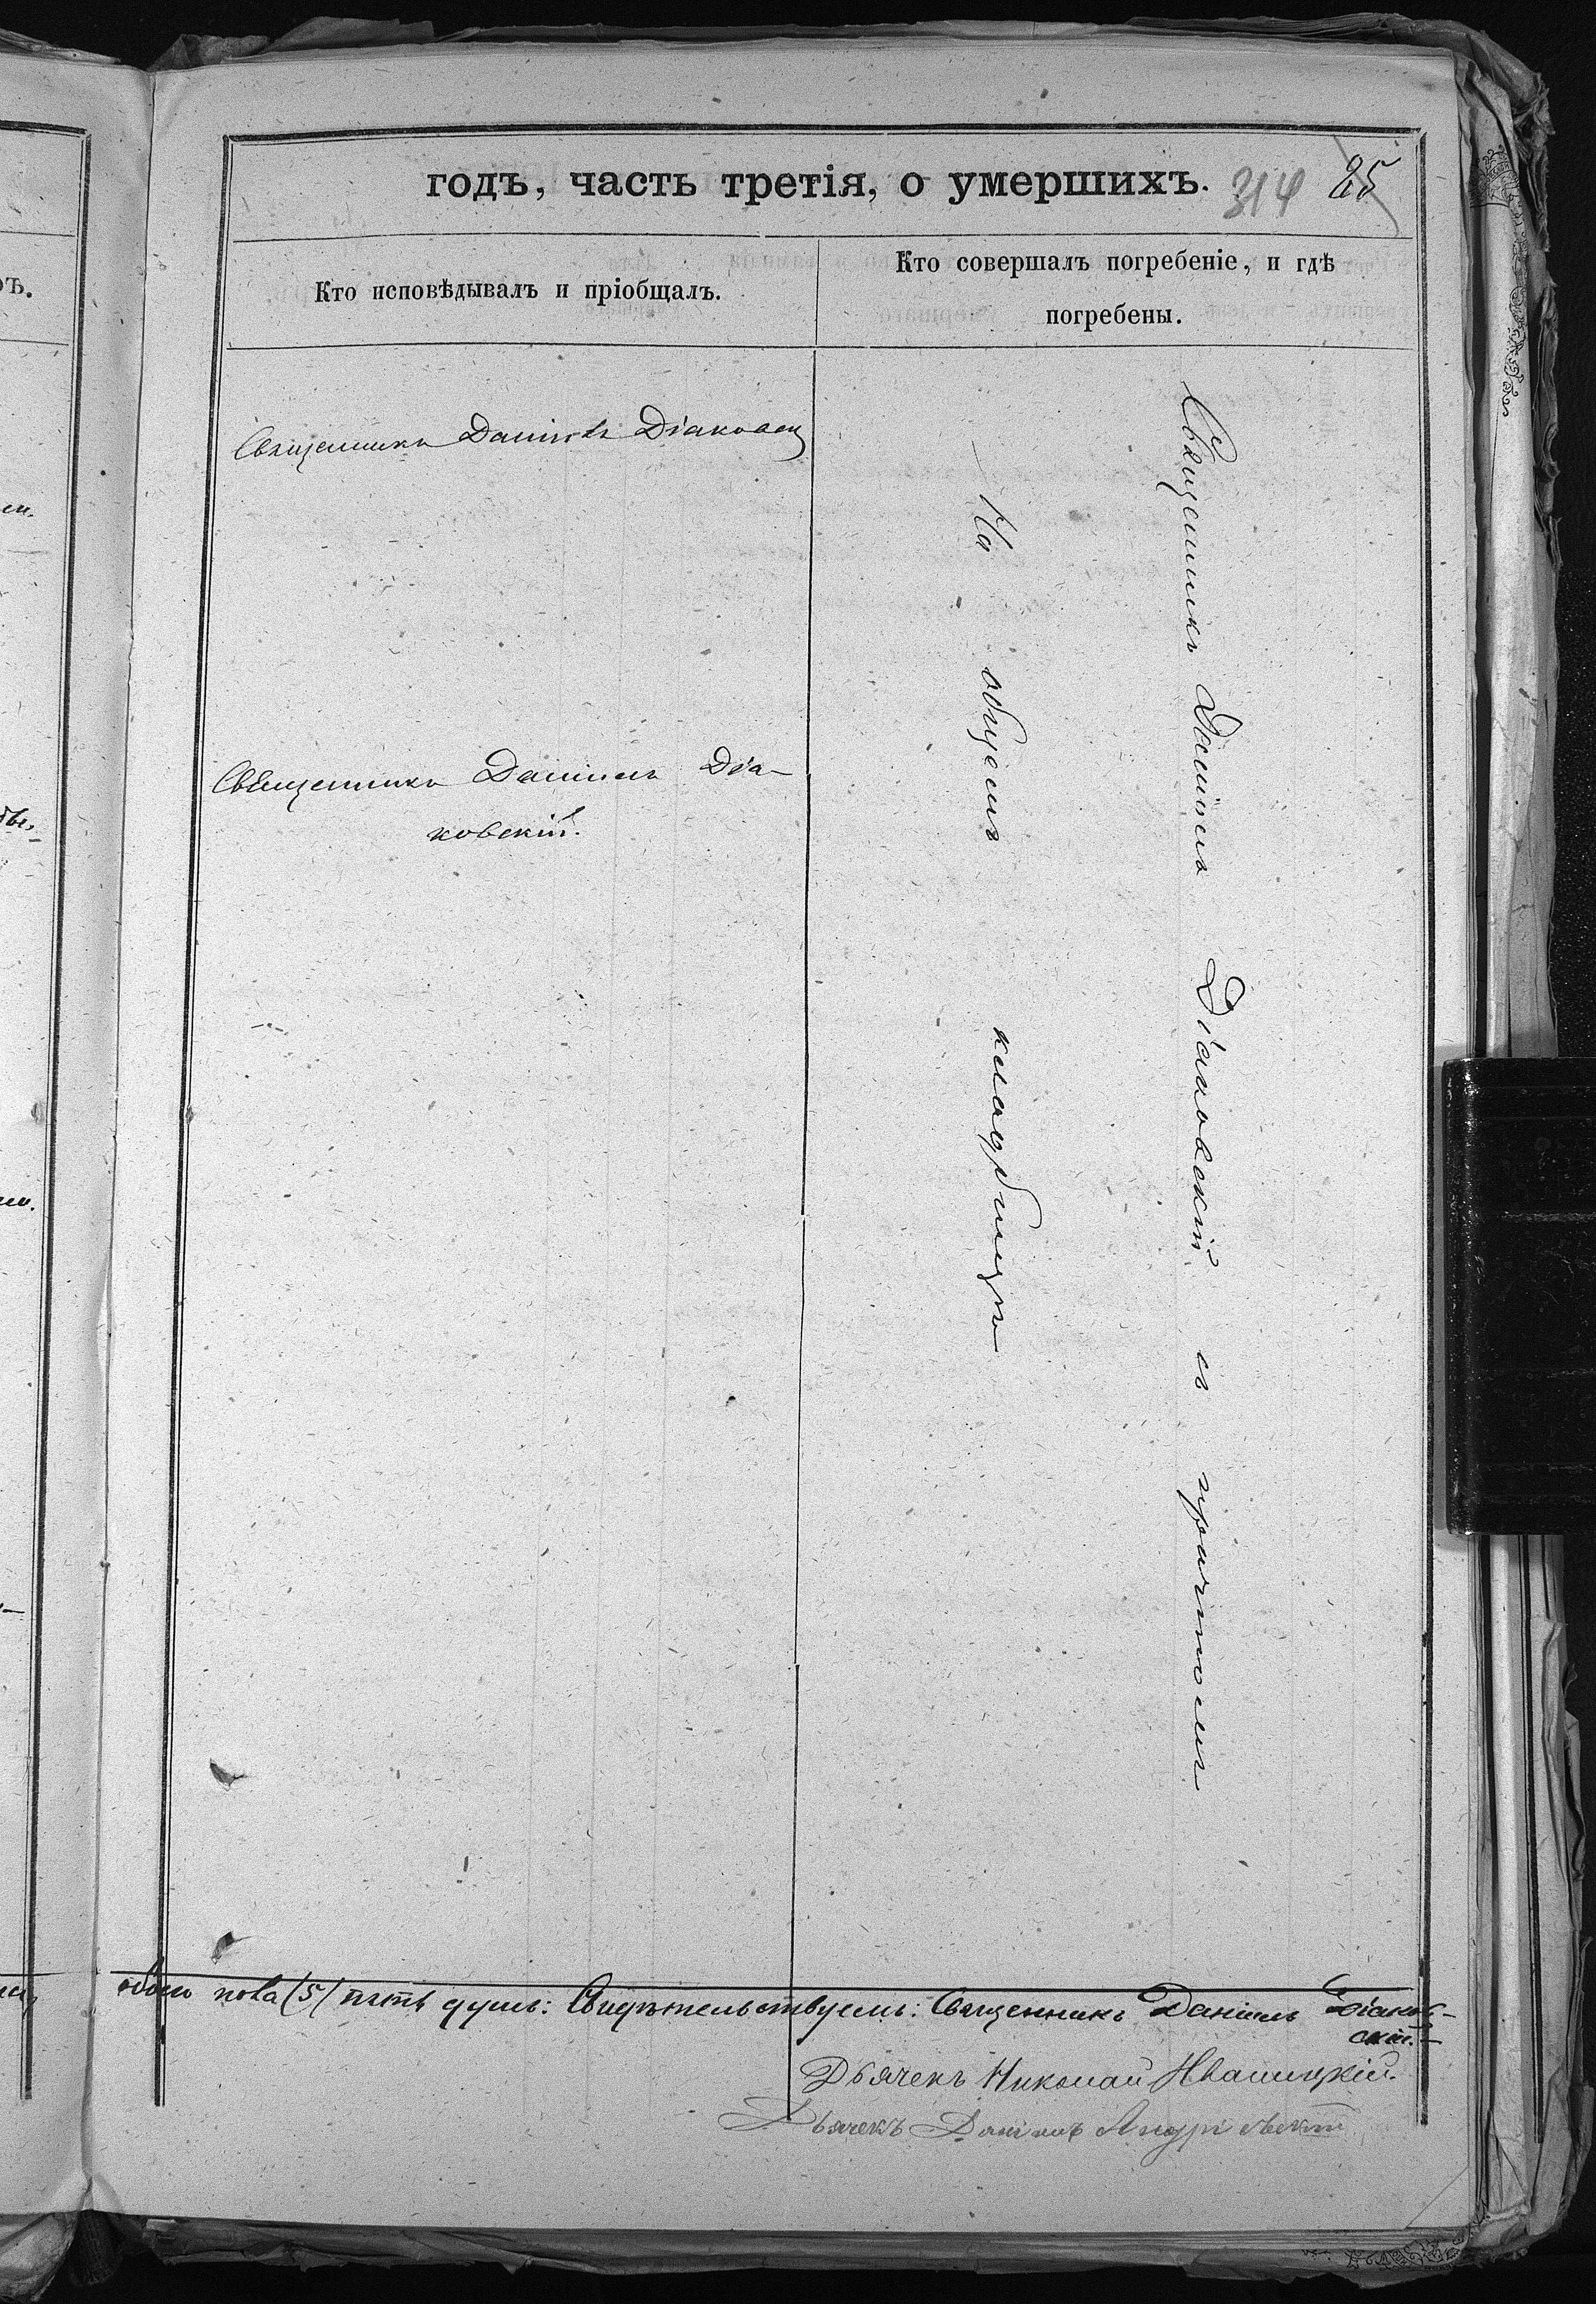 годъ, часть третія, о умершихъ. 314 25
Кто исповѣдывалъ и пріобщалъ.
Кто совершалъ погребеніе, и гдѣ
погребены.
Священникъ Даніилъ Діаковск
Священникъ Даніилъ Діа-
ковскій.
Священникъ Даніилъ Діаковскій съ причтомъ
На общемъ кладбищѣ
обоего пола (5) пять душъ: Свидѣтельствуемъ: Священникъ Даніилъ Діаков-
скій.
Дьячекъ Николай Ивашицкій.
Дьячекъ Даніилъ